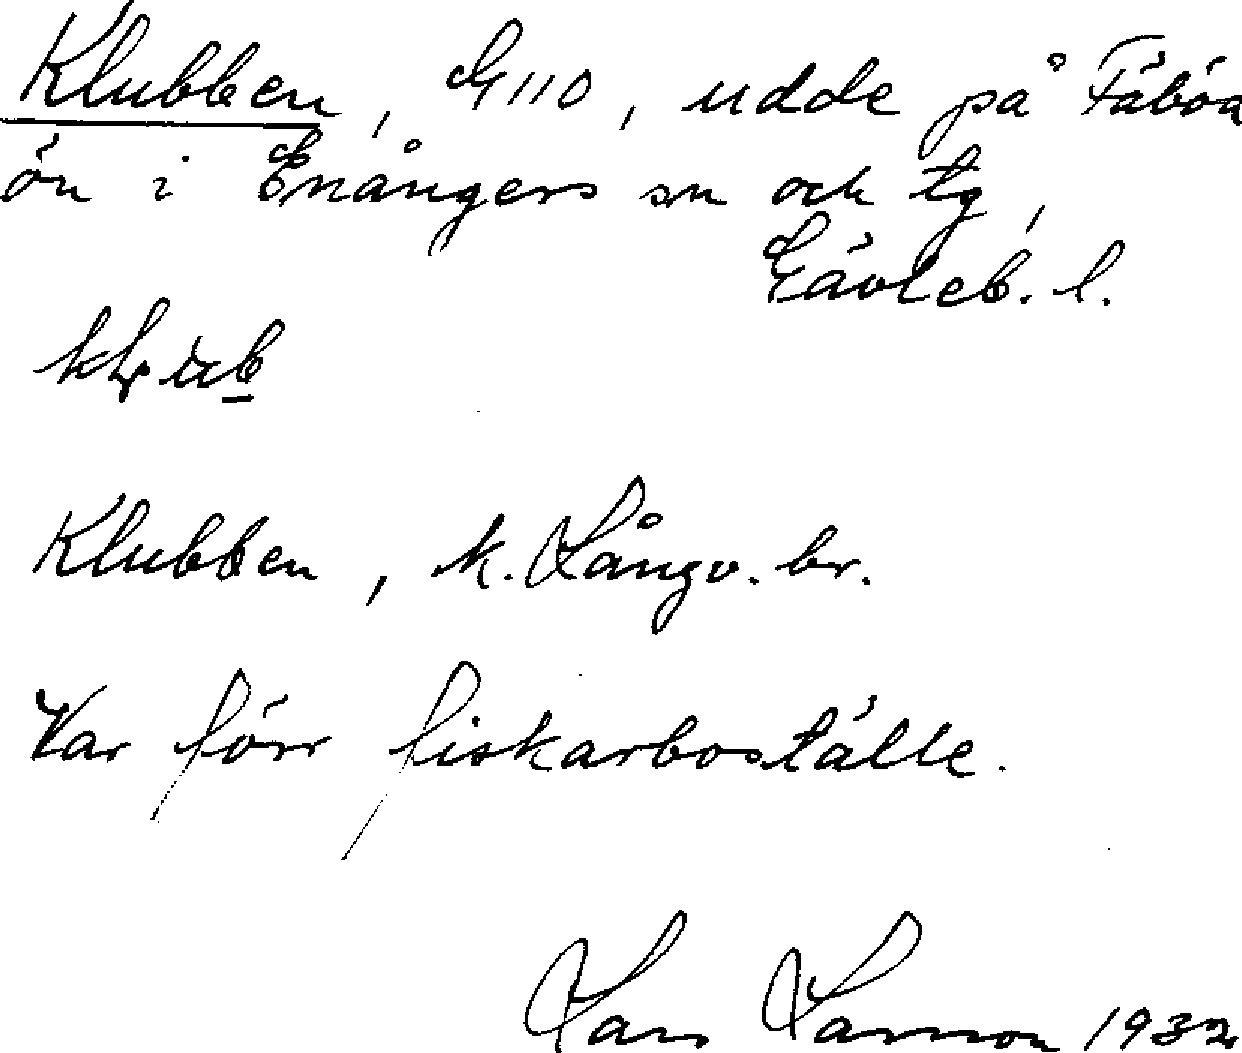 Klubben, G 110, udde på Fäbod
ön i Enångers sn och tg,
Gävleb. l.
Klubben, k. Långv. br.
Var förr fiskarboställe.
Lars Larsson 1932